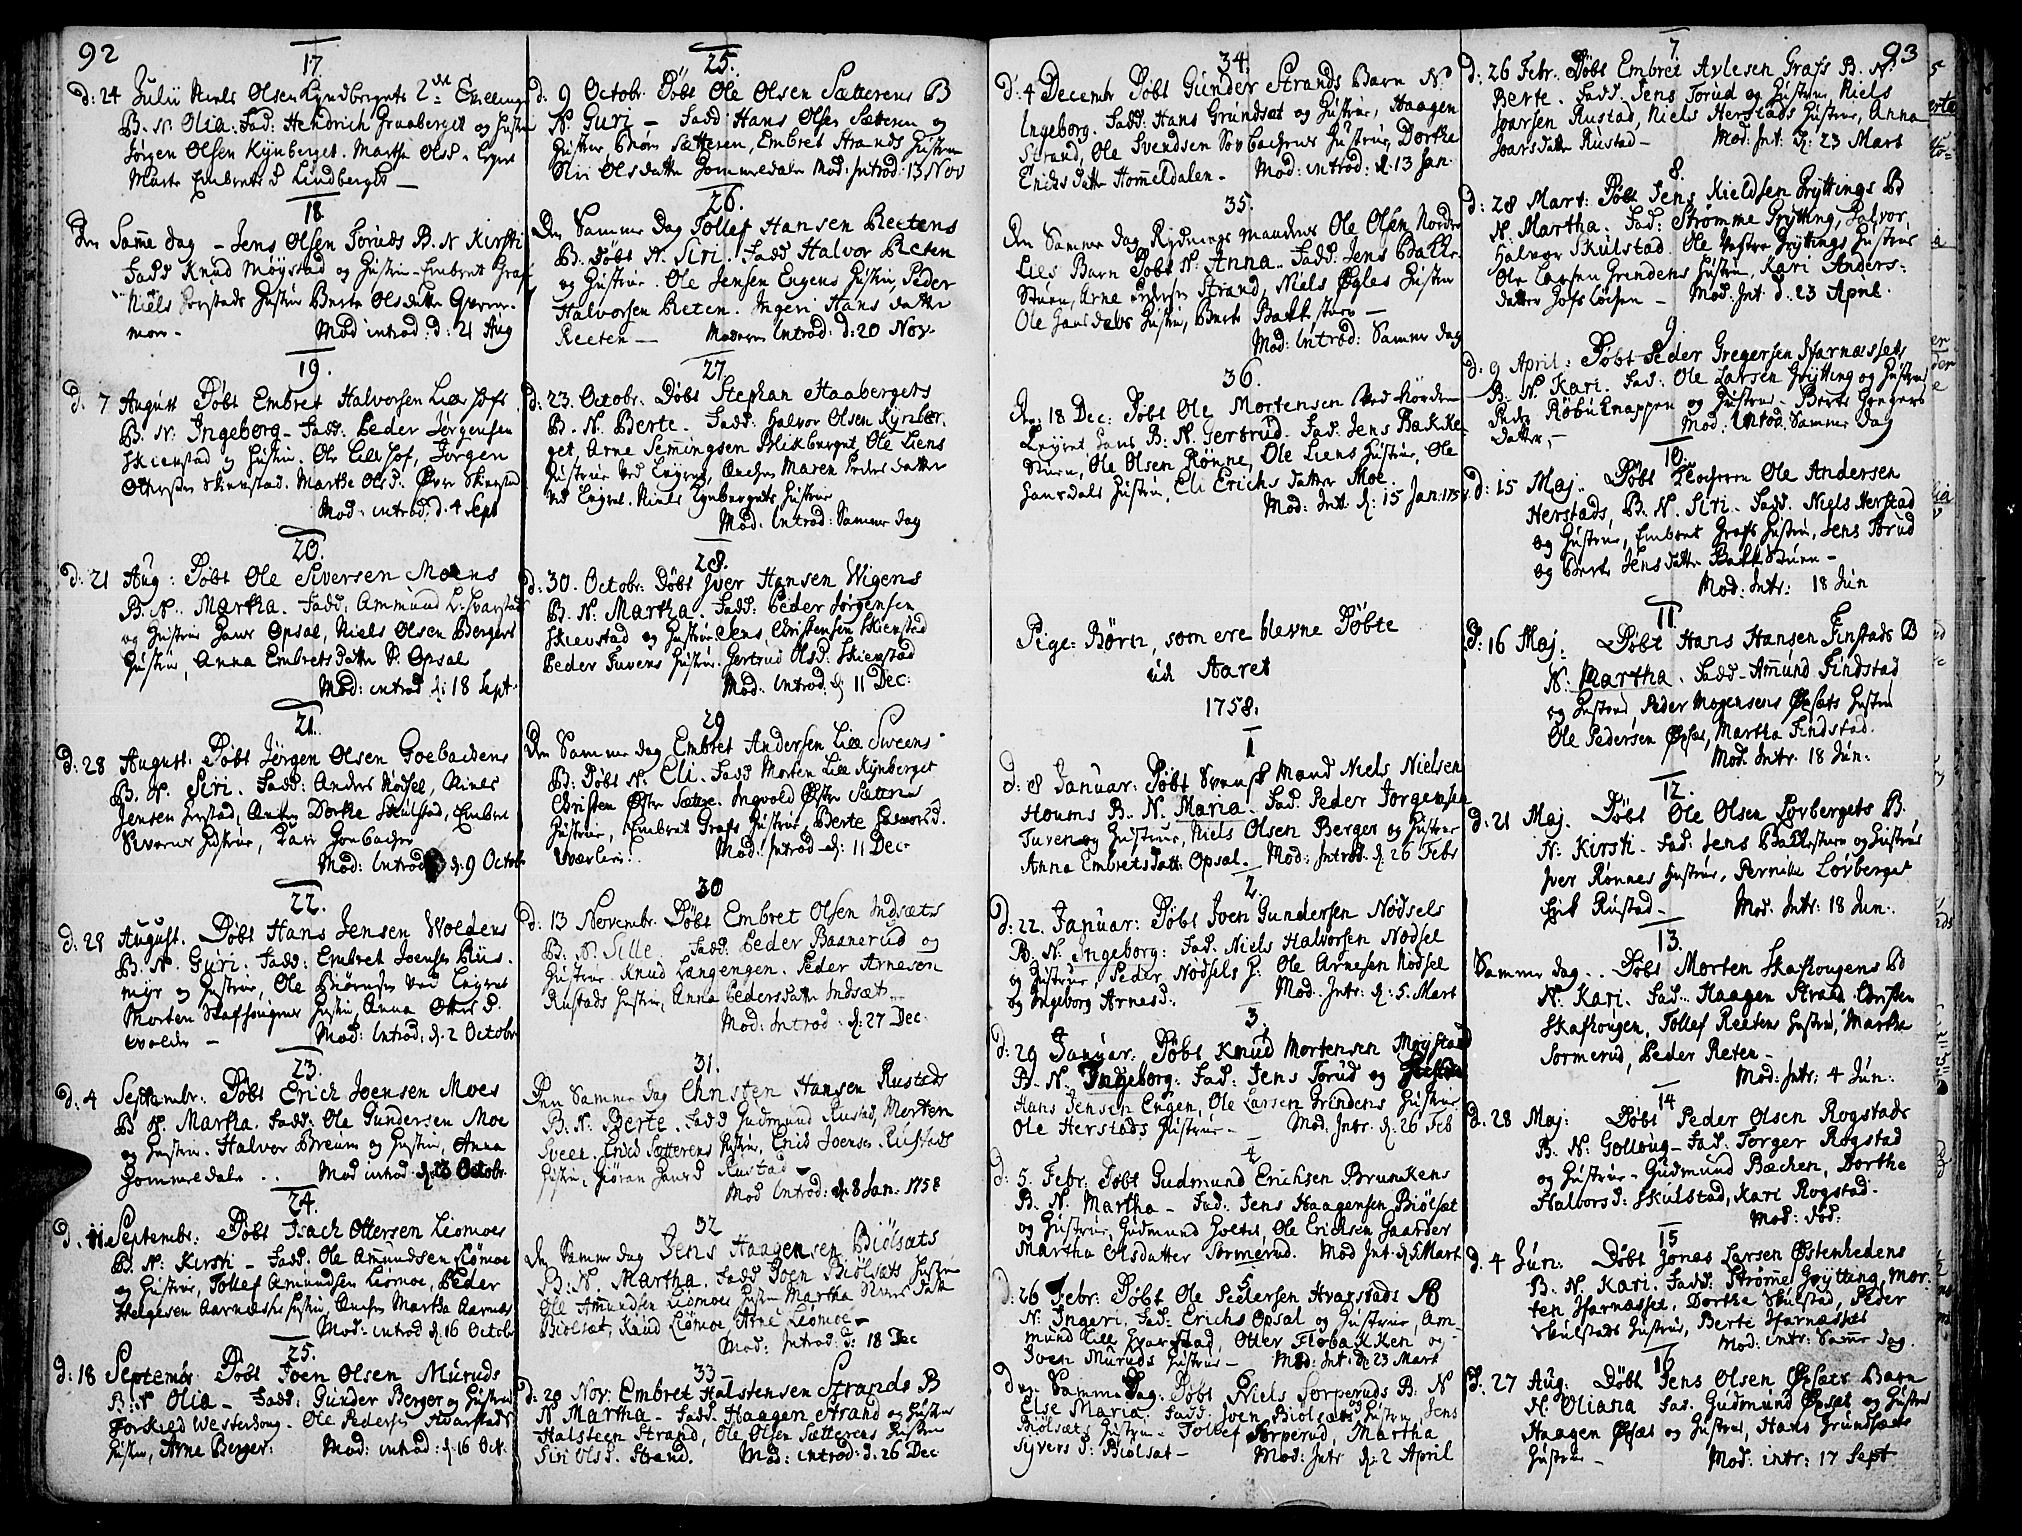 92
17
d: 24 Julii Niels Olsen Kyndbergets 2den
B. N. Olia. Fad: Hendrich Graaberget og Hustru
Jørgen Olsen Kynberget. Marthe Olsd.
Marte Embretsd Lindberget
18
Den Same dag - Jens Olsen Toruds B. N Kirsti
Fadd Knud Møystad og Hustru Embrett Graf
Niels Herstads Hustru Berte Olsdatter
moe - Mod introd: d: 21 Aug
19.
d: 7 August Døbt Embret Halvorsen Lille Hofs
B. N. Ingeborg - Fadd: Peder Jørgensen
Skienstad og Hustru. Ole Lille Hof, Jørgen
Ottersen Skienstad. Marthe Olsd. Øvre Skienstad
Mod: introd: d. 4 Sept
20.
d: 21 Aug: Døbt Ole Siversen Moens
B. N. Martha. Fadd: Ammund L. Svarstad
og Hustrue Hans Opsal, Niels Olsen Bergers
Hustru, Anna Embretsdatter S. Opsal
Mod: introd d: 18 Sept.
21.
d: 28 August: Døbt Jørgen Olsen Goebackens
B. N. Siri. Fadd: Anders Nordsel, Niels
Jensen Herstad, Dorthe Skulstad, Embret
Hustrue, Kari Goebacken
Mod: Introd d: 9 Octobr
22.
d: 28 August. Døbt Hans Jensen Woldens
B. N. Guri. Fadd: Embret Joensen Riis-
myr og Hustrue, Ole Biørnsen ved Leiret
Morten Skafhougens Hustru, Anna Otters D.
Wolden - Mod: Introd: d. 2 Octobr
23.
d: 4 Septembr: Døbt Erich Joensen Moes
B N. Martha. Fadd: Ole Gundersen Moe
og Hustru. Halvor Breum og Hustru, Anna
Hommedalen .. Mod introd d. 16 Octobr.
24.
d. 11 Septembr: Døbt Isach Ottersen Liomoes
B. N: Kirsti - Fadd: Ole Amundsen Liømoe
og Hustrue, Tollef Amundsen Liømoe, Peder
Helgesen Aarnæs Hustru, Martha Aarnæs
Mod: introd d. 16 Octobr
25.
d: 18 Septembr Døbt Joen Olsen Muruds
B: N Olia - Fadd: Gunder Berger og Hustru
Torkied Westerhoug. Ole Pedersen
Hustru, Arne Berger. Mod: introd: d. 16 Oct.
25.
d: 9 Octobr. Døbt Ole Olsen Sætterens B
N. Guri - Fadd Hans Olsen Sætteren og
Hustrue Sætteren, Embret Strands Hustru
Siri Olsdatter Hommedalen Mod: Introd: 13 Nov
26.
Den Samme Dag Tollef Hansen Reetens
B. Døbt N. Siri. Fadd Halvor Reten
og Hustrue. Ole Jensen Engens Hustru, Peder
Halvorsen Reten. Ingeri Hans datter
Reeten — Moderen Introd: d: 20 Nov.
27.
d: 23. Octobr. Døbt Stephan Haabergets
B. N. Berte. Fadd: Halvor Olsen Kynber-
get, Arne Semmingsen Blikberget Ole Liens
Hustrue ved Leyret, Maren Peders datter
ved Leyret. Niels Kynbergets Hustrue
Mod: Introd: Samme dag
28.
d: 30. Octobr. Døbt Iver Hansen Wigens
B. N. Martha. Fadd: Peder Jørgensen
Skienstad og Hustrue, Jens Christensen Skienstad
Peder Tuvens Hustru. Gertrud Olsd. Skienstad
Mod: Introd: d: 11 Dec:
29
Den Samme dag Embret Andersen Lille Sweens
B: Døbt N: Eli. Fadd Morten Lille Kynberget
Christen Østre Sættre. Ingvold Østre Sættres
Hustrue, Embret Grafs Hustrue, Berte
Mod: Introd - d: 11 Dec:
30
d: 13 Novembr. Døbt Embret Olsen Indsæts
B. N. Sille - Fadd: Peder Baanerud og
Hustrue. Knud Langengen. Peder Arnesen
Rustads Hustru, Anna Pedersdatter Indsæt
Mod: Introd: d: 27 Dec:
31.
Den Samme dag Christen Hansen Rustads
B: N: Berte. Fadd Gudmund Rustad, Morten
Sveen. Erich Sætterens Hustru, Erich Joensen Rustads
Hustru, Gjøran Hansd Rustad
Mod Introd: d: 8 Jan: 1758
32
Den Samme dag Jens Haagensen Biølsæts
B: N. Martha. Fadd Joen Biølsæts Hustru
Ole Amundsen Liomoes Hustru Martha Sivers datter
Biølsæt, Knud Liømoe, Arne Liømoe
Mod: Introd: d: 18 Dec
33
d: 20 Nov: Embret Halstensen Strands B
N. Martha - Fadd Haagen Strand og Hustru
Halsteen Strand, Ole Olsen Sætterens Hustru
Siri Olsd. Strand. Mod: introd: d: 26 Dec
34.
d: 4 Decembr Døbt Gunder Strands Barn N.
Ingeborg. Fadd: Hans Grundsæt og Hustrue, Haagen
Strand, Ole Svendsen Sorbachens Hustru, Dorthe
Erichsdatter Hommeldalen. Mod: introd: d: 13 Jan.
35.
Den Samme Dag Rydnings Mandens Ole Olsen Nordre
Lies Barn Døbt N. Anna. Fadd: Jens Bakke-
stuen, Arne Strand, Niels Øgles Hustrue
Ole Hansdals Hustru, Berte Bakkestuen -
Mod: Introd: Samme dag
36.
d: 18 Dec: Døbt Ole Mortensen ved Nordre
Leyret Hans B: N. Gertrud. Fad: Jens Bakke-
Stuen, Ole Olsen Rønne, Ole Liens Hustrue, Ole
Hansdals Hustru, Eli Erichs datter Moe.
Mod: Int: d: 15 Jan: 1758
Pige-Børn, som ere blevne Døbte
udi Aaret
1758.
1
d: 8 Januar: Døbt Svensk Mand Niels Nielsen
Houms B. N. Maria. Fad: Peder Jorgensen
Tuven og Hustrue, Niels Olsen Berger og Hustrue
Anna Embretsdatt: Opsal. Mod: Introd: d. 26 Febr
2.
d: 22. Januar: Døbt Joen Gundersen Nødsels
B. N. Ingeborg: Fad: Niels Halvorsen Nodsel
og Hustrue, Peder Nødsels H: Ole Arnesen Nødsel
og Ingeborg Arnesd. Mod: Intr: d: 5. Mart
3.
d: 29 Januar: Døbt Knud Mortensen Moystad
B. N. Ingeborg: Fad: Jens Torud og Hustrue
Hans Jensen Engen, Ole Larsen Grindens Hustrue
Ole Herstads Hustrue - Mod: Intr: d: 26 Feb
4
d: 5. Febr: Døbt Gudmund Erichsen Brunkens
B. N. Martha - Fad: Jens Haagensen Biølsæt
og Hustrue, Gudmund Holtet, Ole Erichsen Gaarder
Martha Olsdatter Sormerud. Mod Int: d 5 Mart
5
d: 26 Febr: Døbt Ole Pedersen Hvarstads B
N. Ingeri. Fad: Erich Opsal og Hustrue, Am-
mund Lille Hvarstad, Otter Flobakken og
Iven Muruds Hustrue - Mod: Int: d 23 Mart
6
den Samme Dag: Døbt Niels Sorperuds B: N
Else Maria. Fadd: Iven Biølsæts og Hustrue, Jens
Biølsæts Hustru - Tollef Sorperud, Martha
Syvers D: Biølsat - Mod: Intr d: 2 April
93
7
d: 26 Febr. Døbt Embret Avlesen Grafs B. N.
Berte. Fadd. Jens Torud og Hustrue, Niels
Joarsen Rustad, Niels Herstads Hustrue, Anna
Joarsdatter Rustad - Mod: Int. d: 23 Mart
8.
d: 28 Mart: Døbt Jens Kieldsen Gryttings B
N. Martha: Fad: Stromme Grytting, Halvor
Halvor Skulstad. Ole Vestre Gryttings Hustrue
Ole Larsen Grindens Hustru, Kari Anders-
datter Hofs Lochen - Mod: Int. d. 23 April.
9
d: 9 April: Døbt Peder Gregersen Harnæssets
B: N. Kari. Fad: Ole Larsen Grytting og Hustrue
Peder Røbulknappen og Hustrue - Berte Gregers
datter, - Mod: Introd. Samme dag
10.
d: 15 Maj. Døbt Klocheren Ole Andersen
Herstads, B. N. Siri. Fadd. Niels Herstad
og Hustrue, Embret Grafs Hustru, Jens Torud
og Berte Jensdatter Bakkestuen -
Mod: Intr: 18 Jun
11.
d: 16 Maj: Døbt Hans Hansen Finstads B
N: Martha. Fadd - Amund Findstad
og Hustrue, Peder Mogensens Øpsæts Hustru
Ole Pedersen Øpsæt, Martha Findstad.
Mod. Intr. 18 Jun:
12.
d: 21 Maj. Døbt Ole Olsen Lovbergets B.
N: Kirsti - Fad: Jens Bakkestuen og Hustrue
Iver Rønnes Hustrue, Pernille Løvberget
Erik Rustad - Mod: Intr: 18 Jun:
13.
Samme dag .. Døbt Morten Skafhougens B
N. Kari. Fad: Haagen Strand Christen
Skafhougen, Tollef Reetens Hustru, Marthe
Sormerud, Peder Reten -
Mod: Intr: 4 Jun:
14
d. 28 Maj: Døbt Peder Olsen Rogstads
B. N: Golloug - Fad: Torger Rogstad
og Hustrue - Gudmund Bæchen, Dorthe
Halvorsd: Skulstad, Kari Rogstad.
Mod: død:
15
d. 4 Jun: Døbt Jonas Larsen Østenhedens
B. N. Kari. Fadd: Strømme Grytting, Mor-
ten Harnæsset, Dorthe Skulstad, Peder
Skulstads Hustrue, Berte Harnæsset
Mod: Intr: Same dag.
16
d. 27 Aug: Døbt Jens Olsen Øpsæts Barn
N. Oliana Fad. Gudmund Øpsæt og Hustrue
Haagen Øpsæt og Hustrue, Hans Grundsæts
Hustrue - Mod: intr: 17 Sept